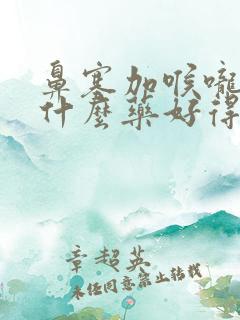 鼻塞加喉嚨
什麼藥好得
章超英
未经同意禁止转载